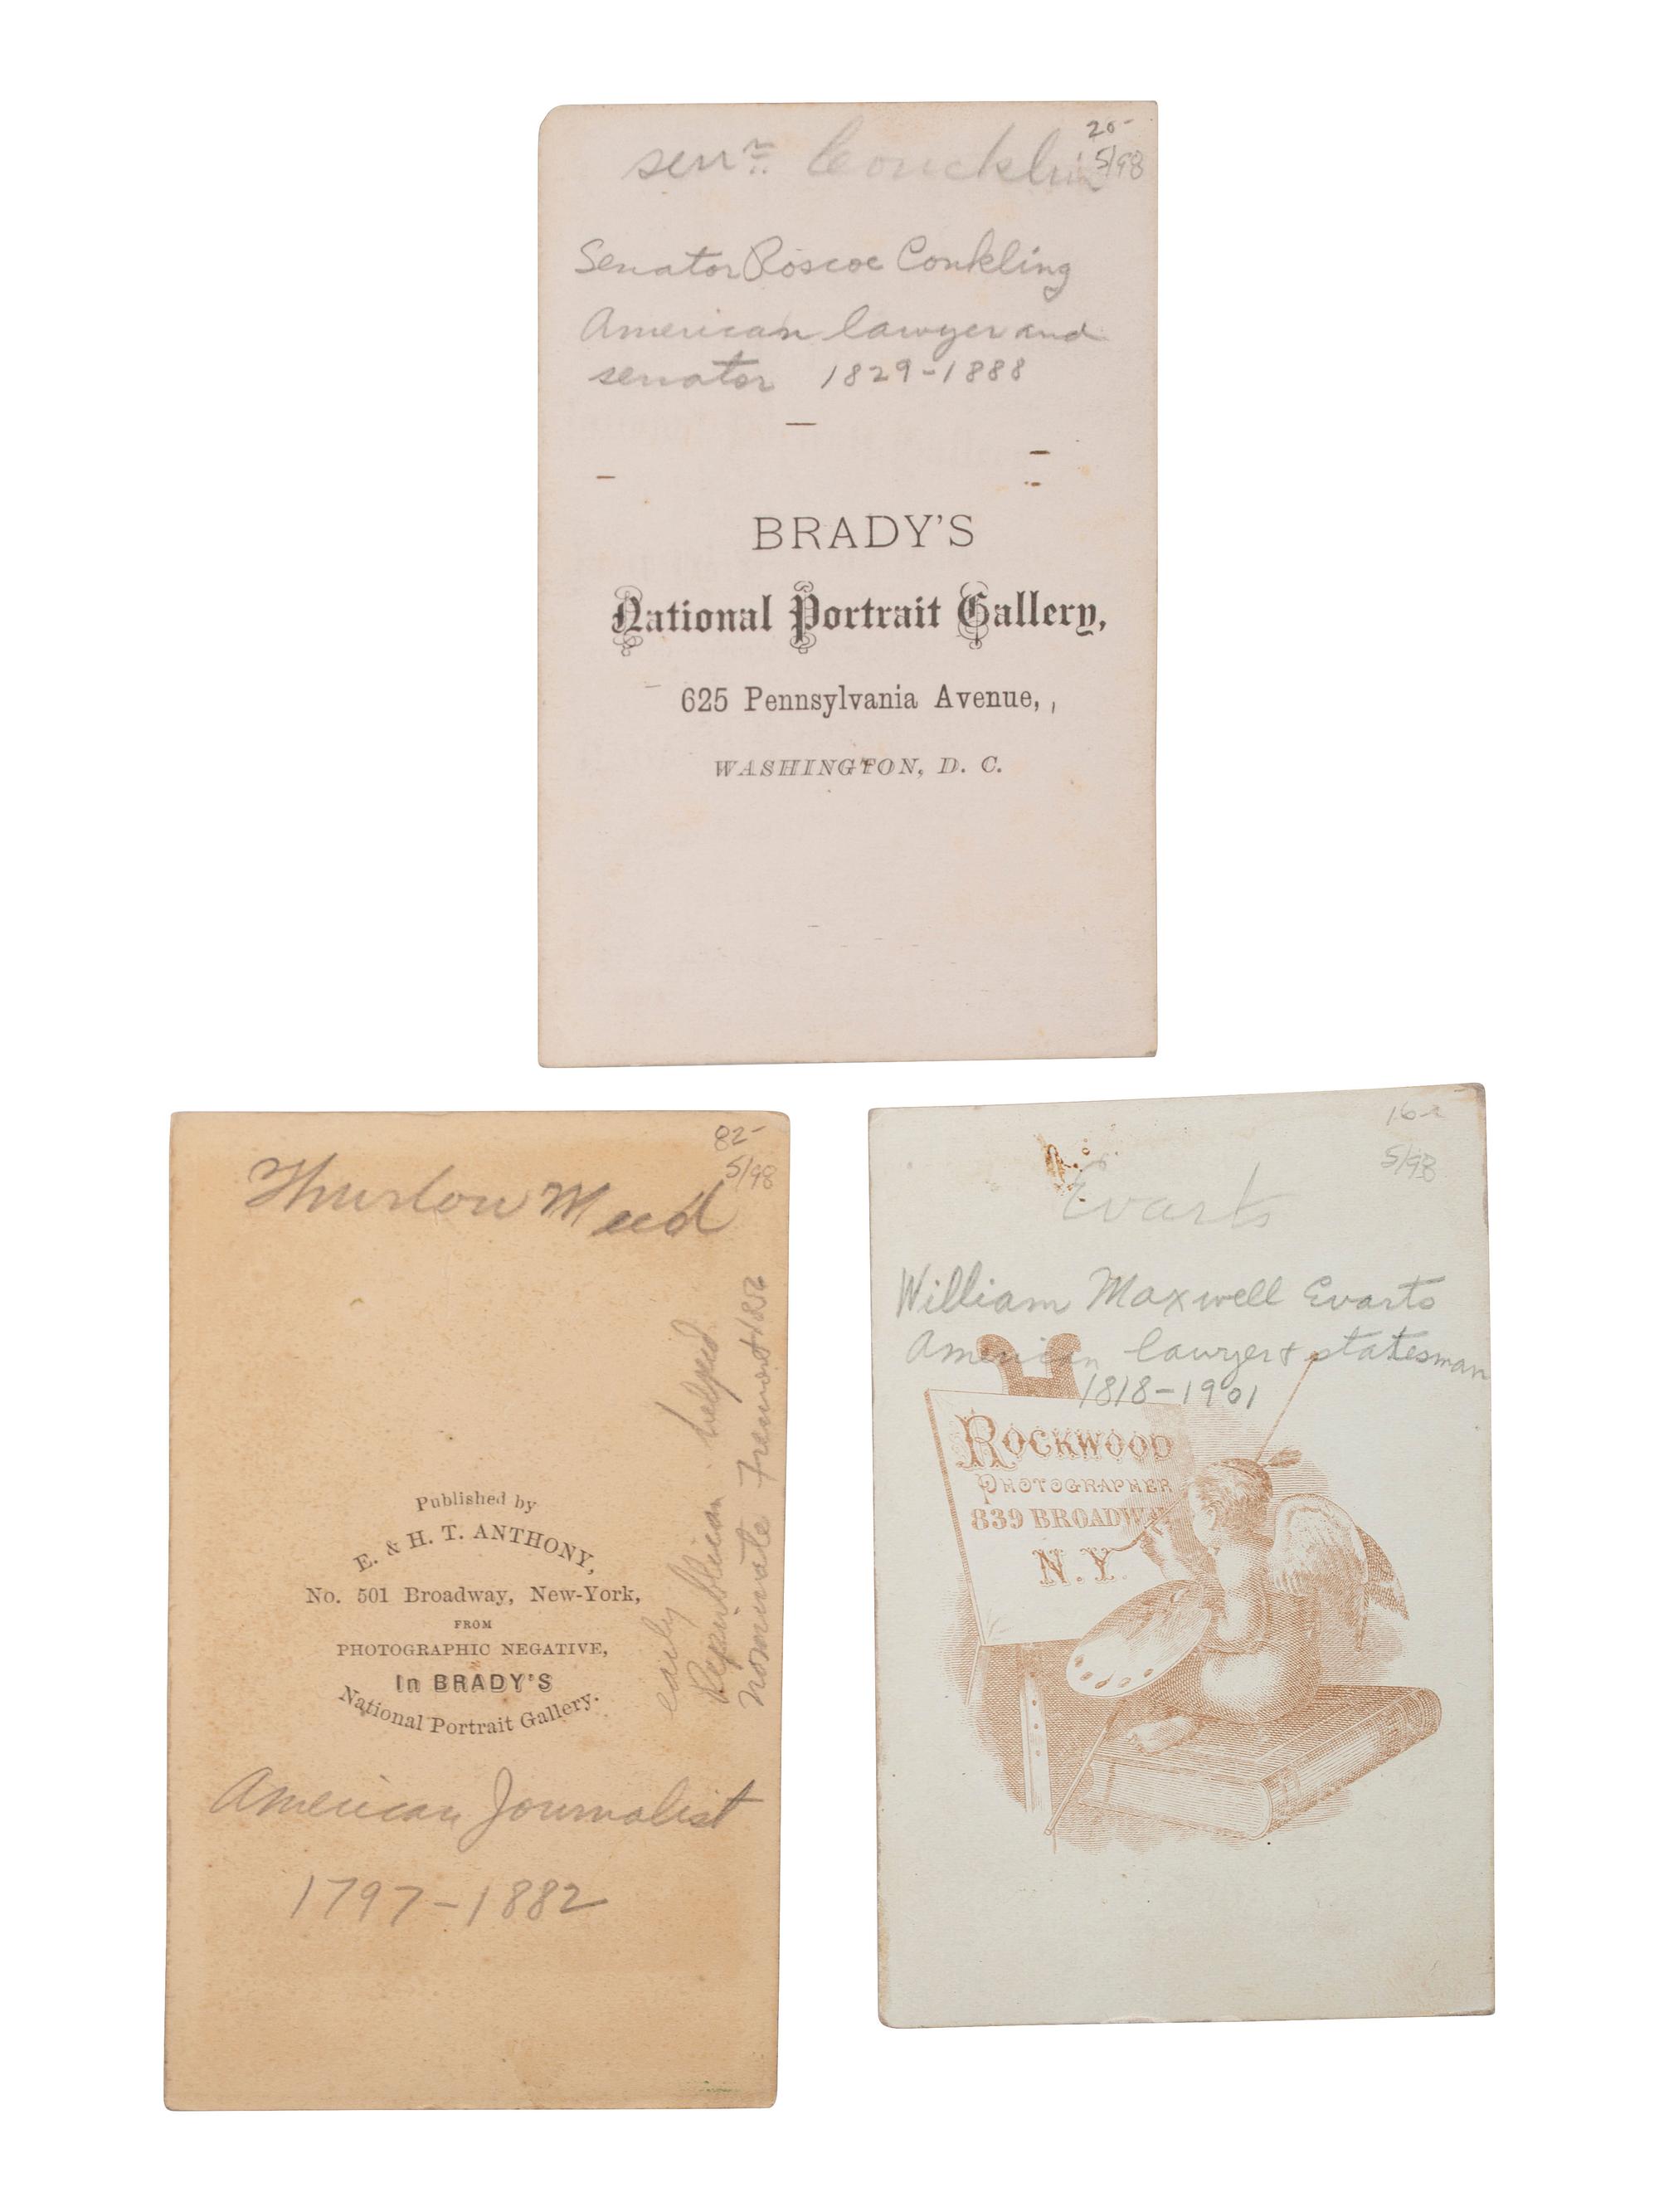 20-
5/98
senr. Coucklin
Senator Roscoe Conkling
American lawyer and
senator 1829-1888
BRADY'S
National Portrait Gallery,
625 Pennsylvania Avenue,
WASHINGTON, D. C.
82-
5/98
Thurlow Weed
early
Republican helped
nominate Fremont 1856
Published by
E. & H. T. ANTHONY,
No. 501 Broadway, New-York,
FROM
PHOTOGRAPHIC NEGATIVE,
In BRADY'S
National Portrait Gallery.
American Journalist
1797-1882
16-
5/98
Evarts
William Maxwell Evarts
American lawyer & statesman
1818-1901
ROCKWOOD
PHOTOGRAPHER
839 BROADWAY
N.Y.